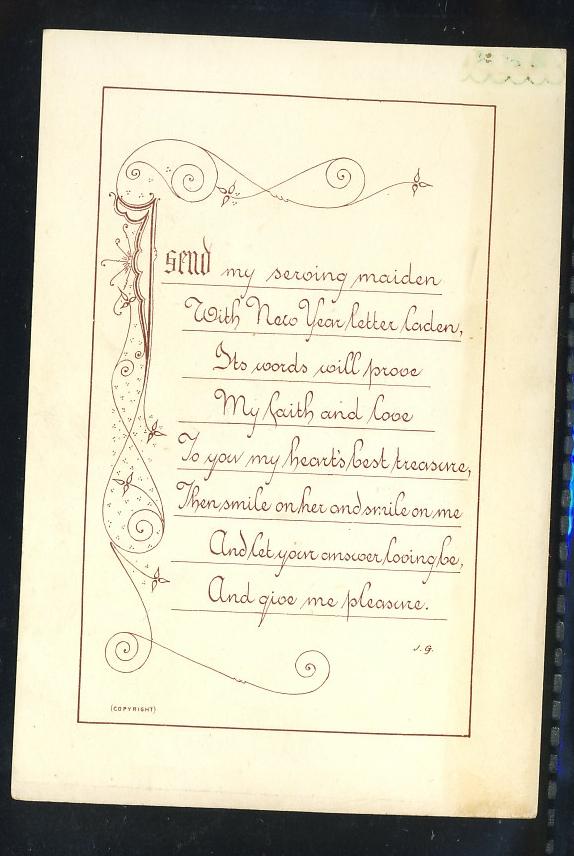 I send my serving maiden
With New Year letter laden,
Its words will prove
My faith and love
To you my heart's best treasure,
Then smile on her and smile on me
And let your answer loving be,
And give me pleasure.
J. G.
(COPYRIGHT)